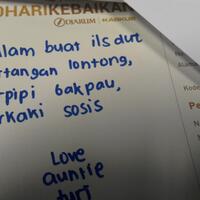 OHARIKEBAIKAN
DJARUM KASKUS
alam buat ils dut
rtangan lontong,
rpipi bakpau,
rkaki sosis
Love
auntie
Nama
Alama
Kode
Pe
N